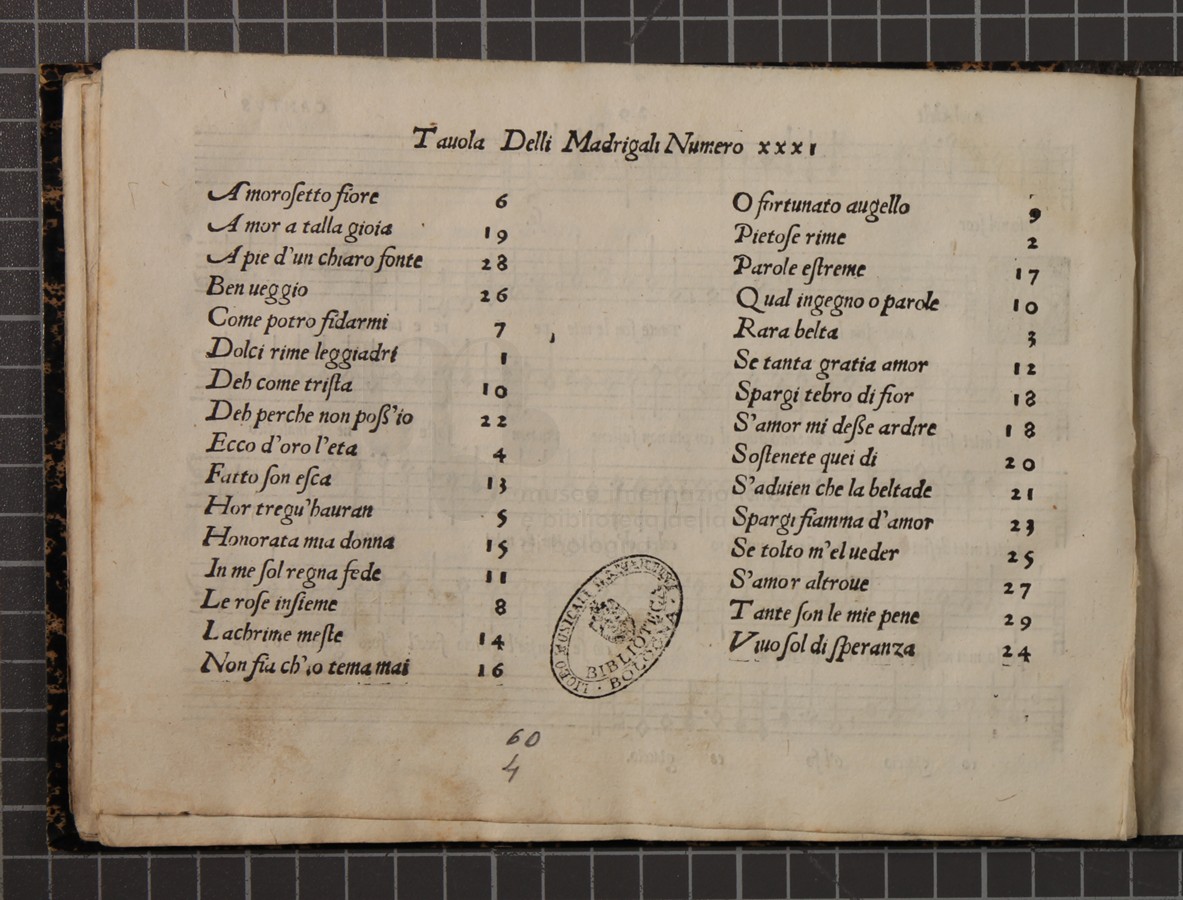 Tauola Delli Madrigali Numero xxxi
Amoroſetto fiore 6
Amor a talla gioia 19
A pie d'un chiaro fonte 28
Ben ueggio 26
Come potro fidarmi 7
Dolci rime leggiadri 1
Deh come triſta 10
Deh perche non poſſ'io 22
Ecco d'oro l'eta 4
Fatto ſon eſca 13
Hor tregu'hauran 5
Honorata mia donna 15
In me ſol regna fede 11
Le roſe inſieme 8
Lachrime meſte 14
Non ſia ch'io tema mai 16
O fortunato augello 9
Pietoſe rime 2
Parole eſtreme 17
Qual ingegno o parole 10
Rara belta 3
Se tanta gratia amor 12
Spargi tebro di fior 18
S'amor mi deſſe ardire 18
Soſtenete quei di 20
S'aduien che la beltade 21
Spargi fiamma d'amor 23
Se tolto m'el ueder 25
S'amor altroue 27
Tante ſon le mie pene 29
Viuo ſol di ſperanza 24
LICEO MUSICALE
BIBLIOTECA
BOLOGNA
60
4